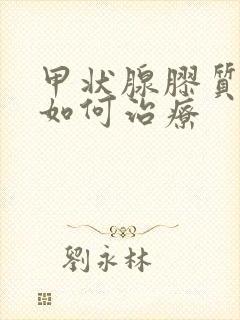 甲状腺膠質
如何治療
劉永林